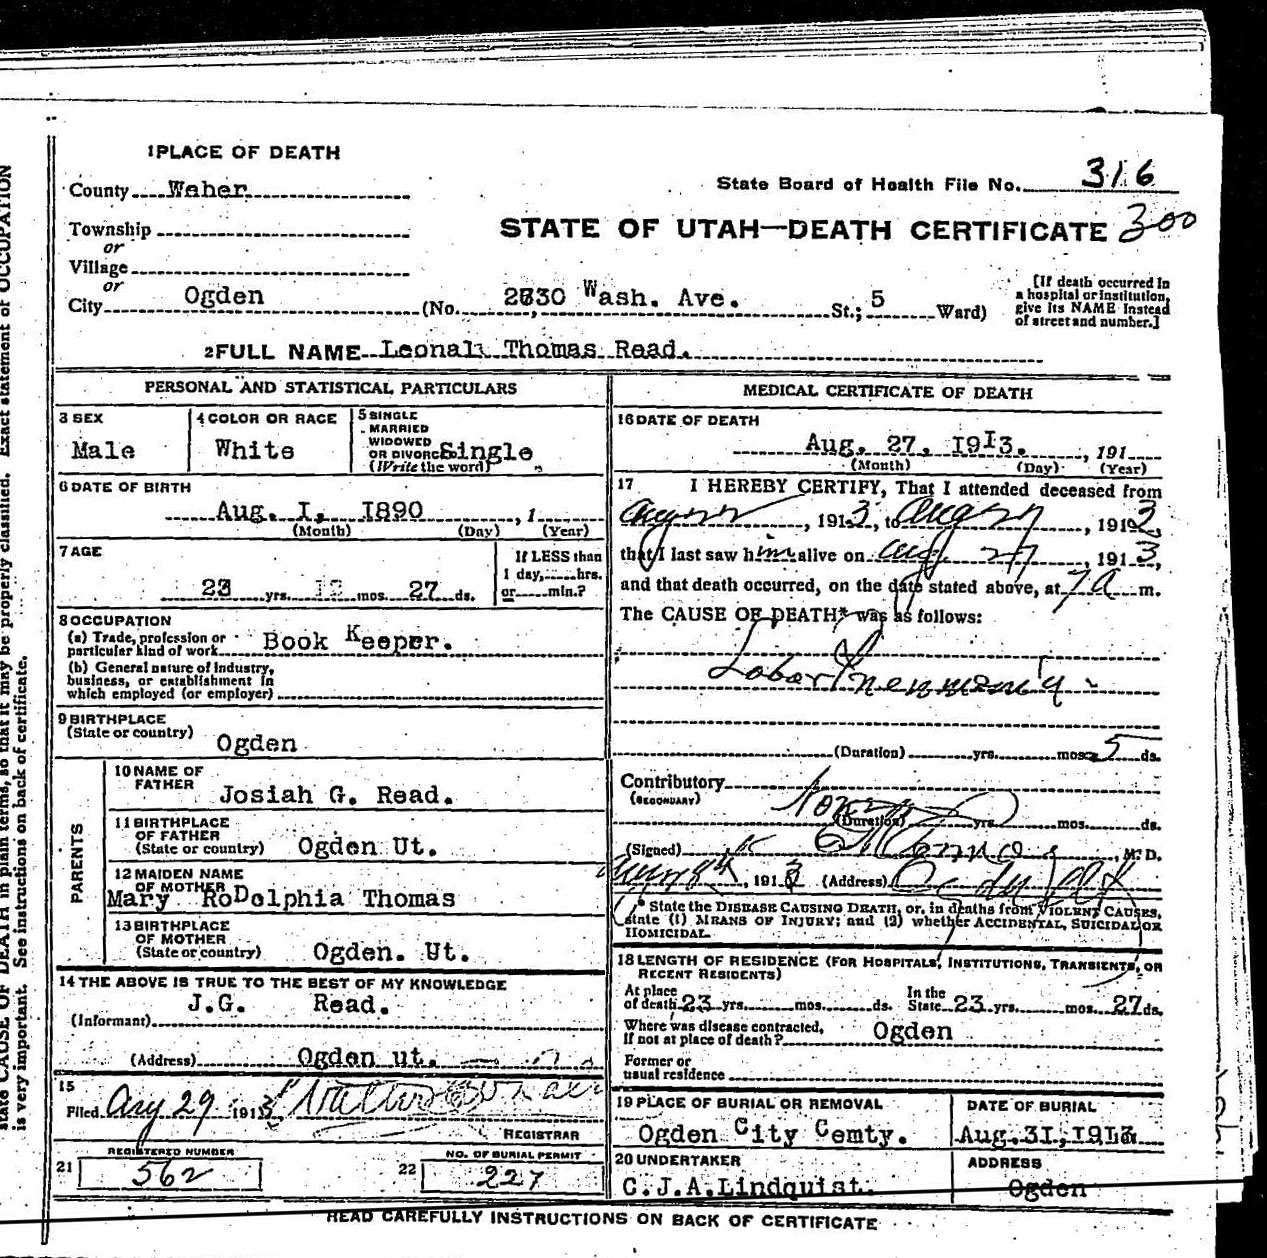 state CAUSE OF DEATH in plain terms, so that it may be properly classified. Exact statement of OCCUPATION
is very important. See instructions on back of certificate.
1 PLACE OF DEATH
County Weber
State Board of Health File No. 316
Township
STATE OF UTAH—DEATH CERTIFICATE 300
or
Village
or
City Ogden (No. 2830 Wash. Ave. St.; 5 Ward)
[If death occurred in
a hospital or institution,
give its NAME instead
of street and number.]
2 FULL NAME Thomas Read.
PERSONAL AND STATISTICAL PARTICULARS
3 SEX
Male
4 COLOR OR RACE
White
5 SINGLE
MARRIED
WIDOWED
OR DIVORCED Single
(Write the word)
6 DATE OF BIRTH
Aug. I, I890 , 1
(Month) (Day) (Year)
7 AGE
23 yrs. mos. 27 ds.
If LESS than
1 day, hrs.
or min.?
8 OCCUPATION
(a) Trade, profession or
particular kind of work Book Keeper.
(b) General nature of Industry,
business, or establishment in
which employed (or employer)
9 BIRTHPLACE
(State or country)
Ogden
PARENTS
10 NAME OF
FATHER
Josiah G. Read.
11 BIRTHPLACE
OF FATHER
(State or country) Ogden Ut.
12 MAIDEN NAME
OF MOTHER
Mary RoDolphia Thomas
13 BIRTHPLACE
OF MOTHER
(State or country) Ogden. Ut.
14 THE ABOVE IS TRUE TO THE BEST OF MY KNOWLEDGE
(Informant) J.G. Read.
(Address) Ogden ut.
15
Filed Aug 29 1913
REGISTRAR
REGISTERED NUMBER
21 562
NO. OF BURIAL PERMIT
22 227
MEDICAL CERTIFICATE OF DEATH
16 DATE OF DEATH
Aug. 27, I9I3. , 191
(Month) (Day) (Year)
17 I HEREBY CERTIFY, That I attended deceased from
, 1913, to Aug 27, 1913,
that I last saw him alive on Aug 27, 1913,
and that death occurred, on the date stated above, at 7 a m.
The CAUSE OF DEATH* was as follows:
Lobar Pneumonia
(Duration) yrs. mos. 5 ds.
Contributory None
(SECONDARY)
(Duration) yrs. mos. ds.
(Signed) , M. D.
, 1913 (Address) Ogden Utah
* State the DISEASE CAUSING DEATH, or, in deaths from VIOLENT CAUSES,
state (1) MEANS OF INJURY; and (2) whether ACCIDENTAL, SUICIDAL OR
HOMICIDAL.
18 LENGTH OF RESIDENCE (FOR HOSPITALS, INSTITUTIONS, TRANSIENTS, OR
RECENT RESIDENTS)
At place
of death 23 yrs. mos. ds.
In the
State 23 yrs. mos. 27 ds.
Where was disease contracted,
If not at place of death? Ogden
Former or
usual residence
19 PLACE OF BURIAL OR REMOVAL
Ogden City Cemty.
DATE OF BURIAL
Aug. 3I, I9I3
20 UNDERTAKER
C.J.A. Lindquist.
ADDRESS
Ogden
READ CAREFULLY INSTRUCTIONS ON BACK OF CERTIFICATE